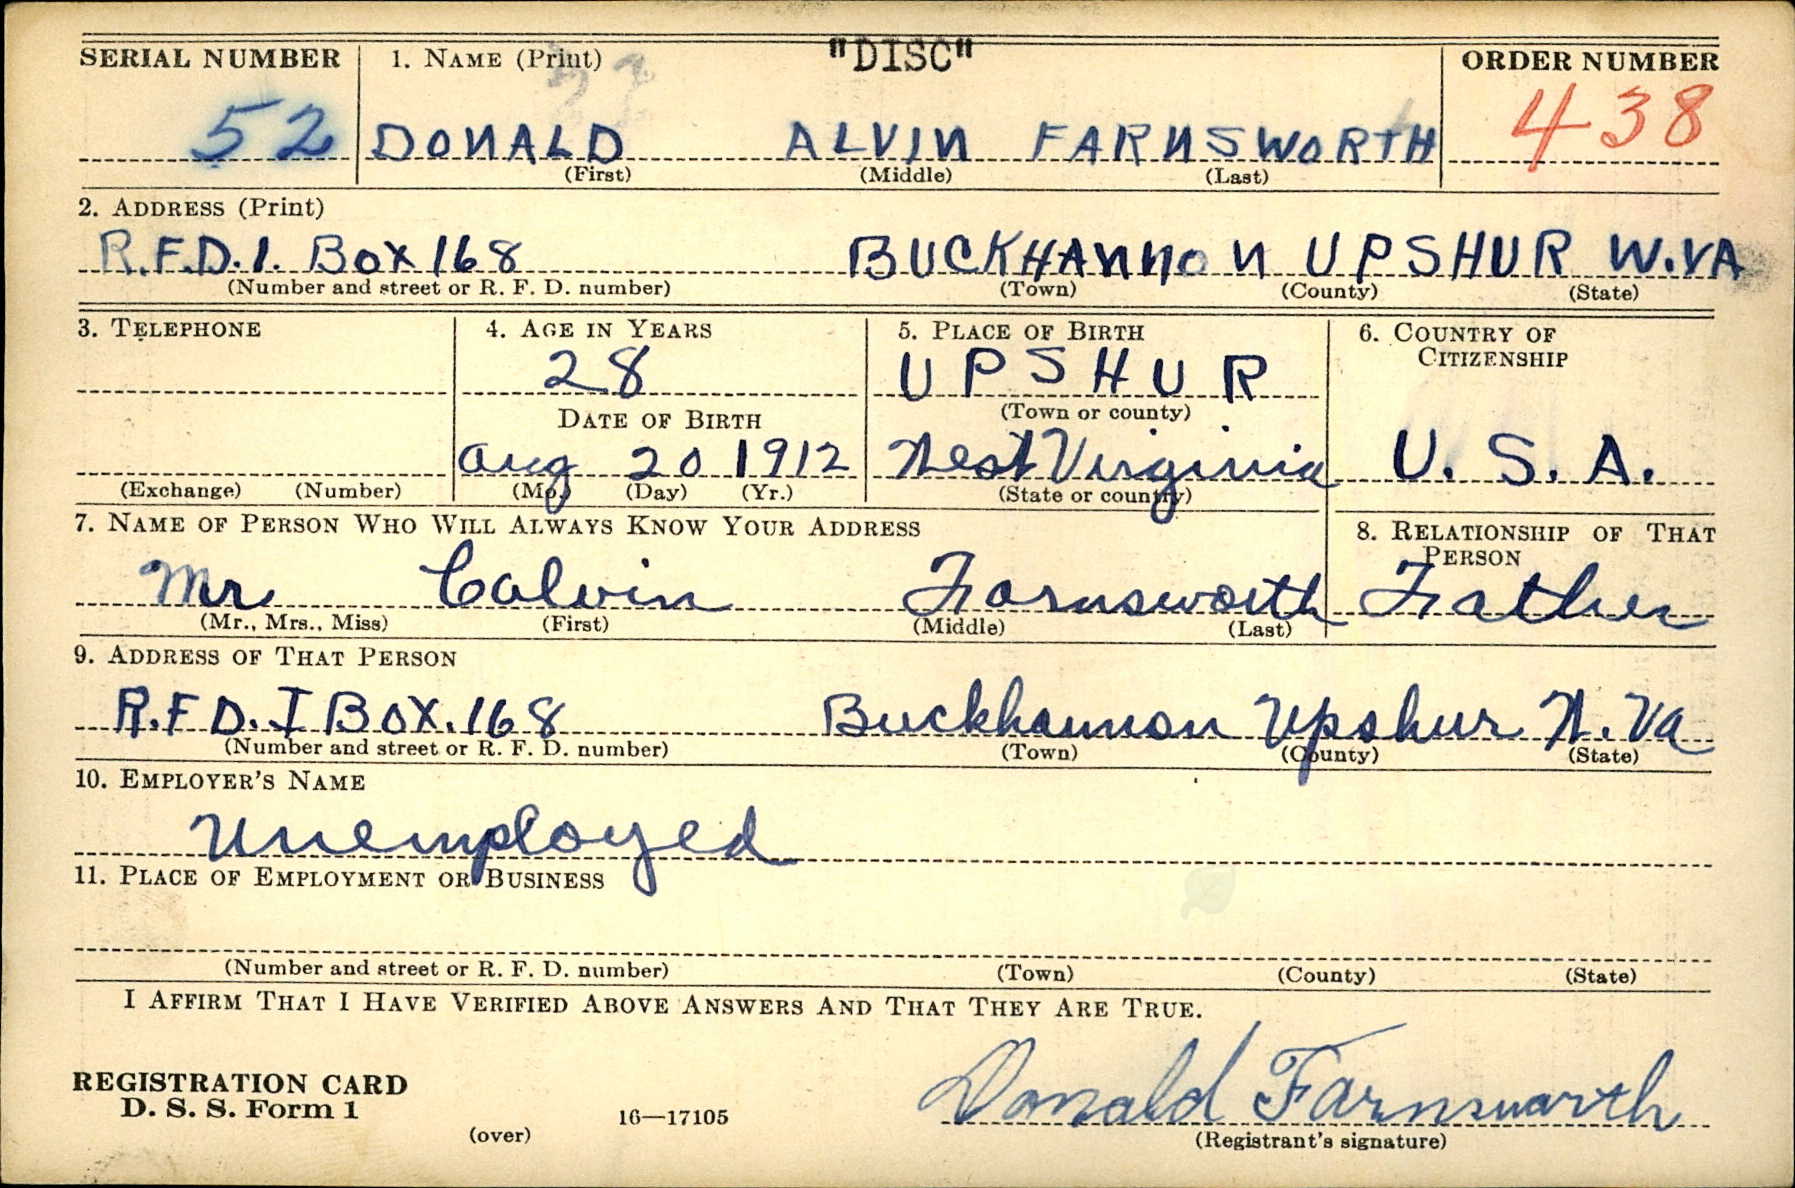 SERIAL NUMBER 1. NAME (Print) "DISC" ORDER NUMBER
52 DONALD ALVIN FARNSWORTH 438
(First) (Middle) (Last)
2. ADDRESS (Print)
R.F.D.1. BOX 168 BUCKHANNON UPSHUR W.VA
(Number and street or R. F. D. number) (Town) (County) (State)
3. TELEPHONE 4. AGE IN YEARS 5. PLACE OF BIRTH 6. COUNTRY OF
CITIZENSHIP
28 UPSHUR
DATE OF BIRTH (Town or county)
Aug 20 1912 West Virginia U. S. A.
(Exchange) (Number) (Mo.) (Day) (Yr.) (State or country)
7. NAME OF PERSON WHO WILL ALWAYS KNOW YOUR ADDRESS 8. RELATIONSHIP OF THAT
PERSON
Mr Calvin Farnsworth Father
(Mr., Mrs., Miss) (First) (Middle) (Last)
9. ADDRESS OF THAT PERSON
R.F.D. I BOX.168 Buckhannon Upshur W. Va
(Number and street or R. F. D. number) (Town) (County) (State)
10. EMPLOYER'S NAME
Unemployed
11. PLACE OF EMPLOYMENT OR BUSINESS
(Number and street or R. F. D. number) (Town) (County) (State)
I AFFIRM THAT I HAVE VERIFIED ABOVE ANSWERS AND THAT THEY ARE TRUE.
REGISTRATION CARD
D. S. S. Form 1 16—17105 Donald Farnsworth
(over) (Registrant's signature)